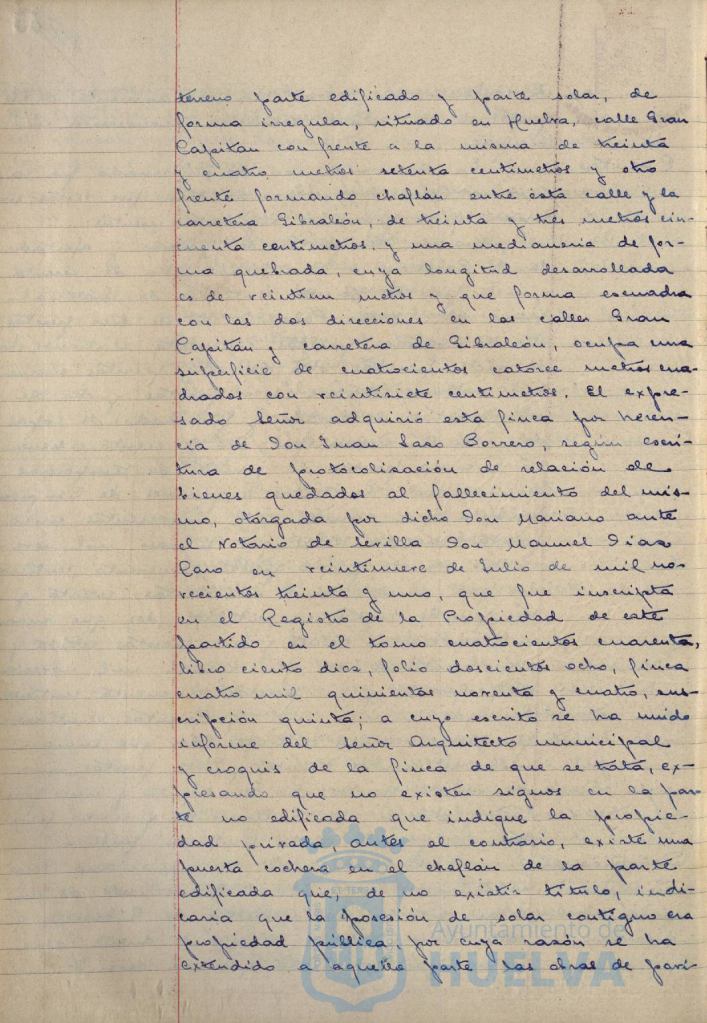 terreno parte edificado y parte solar, de
forma irregular, situado en Huelva, calle Gran
Capitán con frente a la misma de treinta
y cuatro metros setenta centimetros y otro
frente formando chaflán entre esta calle y la
carretera Gibraleón, de treinta y tres metros cin-
cuenta centimetros, y una medianeria de for-
ma quebrada, cuya longitud desarrollada
es de veintiun metros y que forma escuadra
con las dos direcciones en las calles Gran
Capitán y carretera de Gibraleón, ocupa una
superficie de cuatrocientos catorce metros cua-
drados con veintisiete centimetros. El expre-
sado Señor adquirió esta finca por heren-
cia de Don Juan Saro Borrero, según escri-
tura de protocolización de relación de
bienes quedados al fallecimiento del mis-
mo, otorgada por dicho Don Mariano ante
el Notario de Sevilla Don Manuel Diaz
Caro en veintinueve de Julio de mil no-
vecientos treinta y uno, que fue inscripta
en el Registro de la Propiedad de este
partido en el tomo cuatrocientos cuarenta,
libro ciento diez, folio doscientos ocho, finca
cuatro mil quinientos noventa y cuatro, ins-
cripción quinta; a cuyo escrito se ha unido
informe del Señor Arquitecto municipal
y croquis de la finca de que se trata, ex-
presando que no existen signos en la par-
te no edificada que indique la propie-
dad privada, antes al contrario, existe una
puerta cochera en el chaflán de la parte
edificada que, de no existir titulo, indi-
caria que la posesión de solar contiguo era
propiedad pública, por cuya razón se ha
extendido a aquella parte las obras de pavi-
Ayuntamiento de
HUELVA